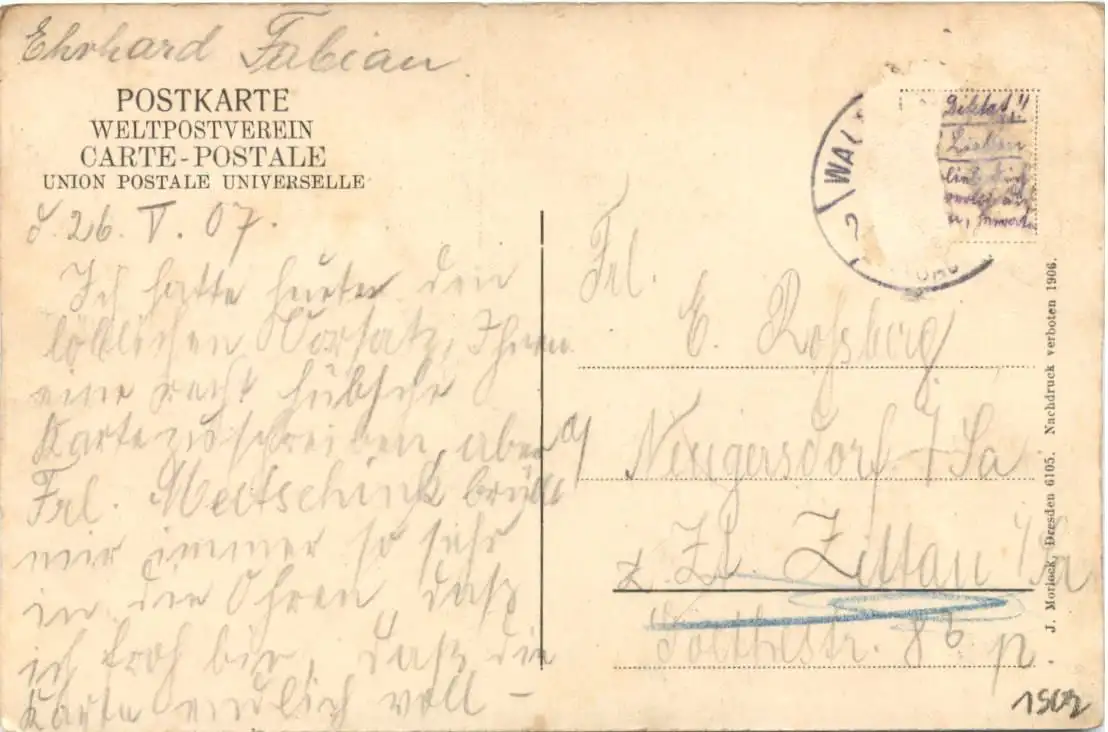 Ehrhard Fabian
POSTKARTE
WELTPOSTVEREIN
CARTE-POSTALE
UNION POSTALE UNIVERSELLE
d. 26. V. 07.
Ich hatte heute den
löblichen Vorsatz, Ihnen
eine recht hübsche
Karte zu schreiben, aber
Frl. Meltschink brüllt
mir immer so sehr
in die Ohren, daß
ich froh bin, daß die
Karte endlich voll –
WAL
Diktat"
Lieben
Frl.
E. Roßberg
Neugersdorf i/Sa
z. Zt. Zittau i/Sa
Goethestr. 8 b p.
J. Morlock, Dresden 6105. Nachdruck verboten 1906.